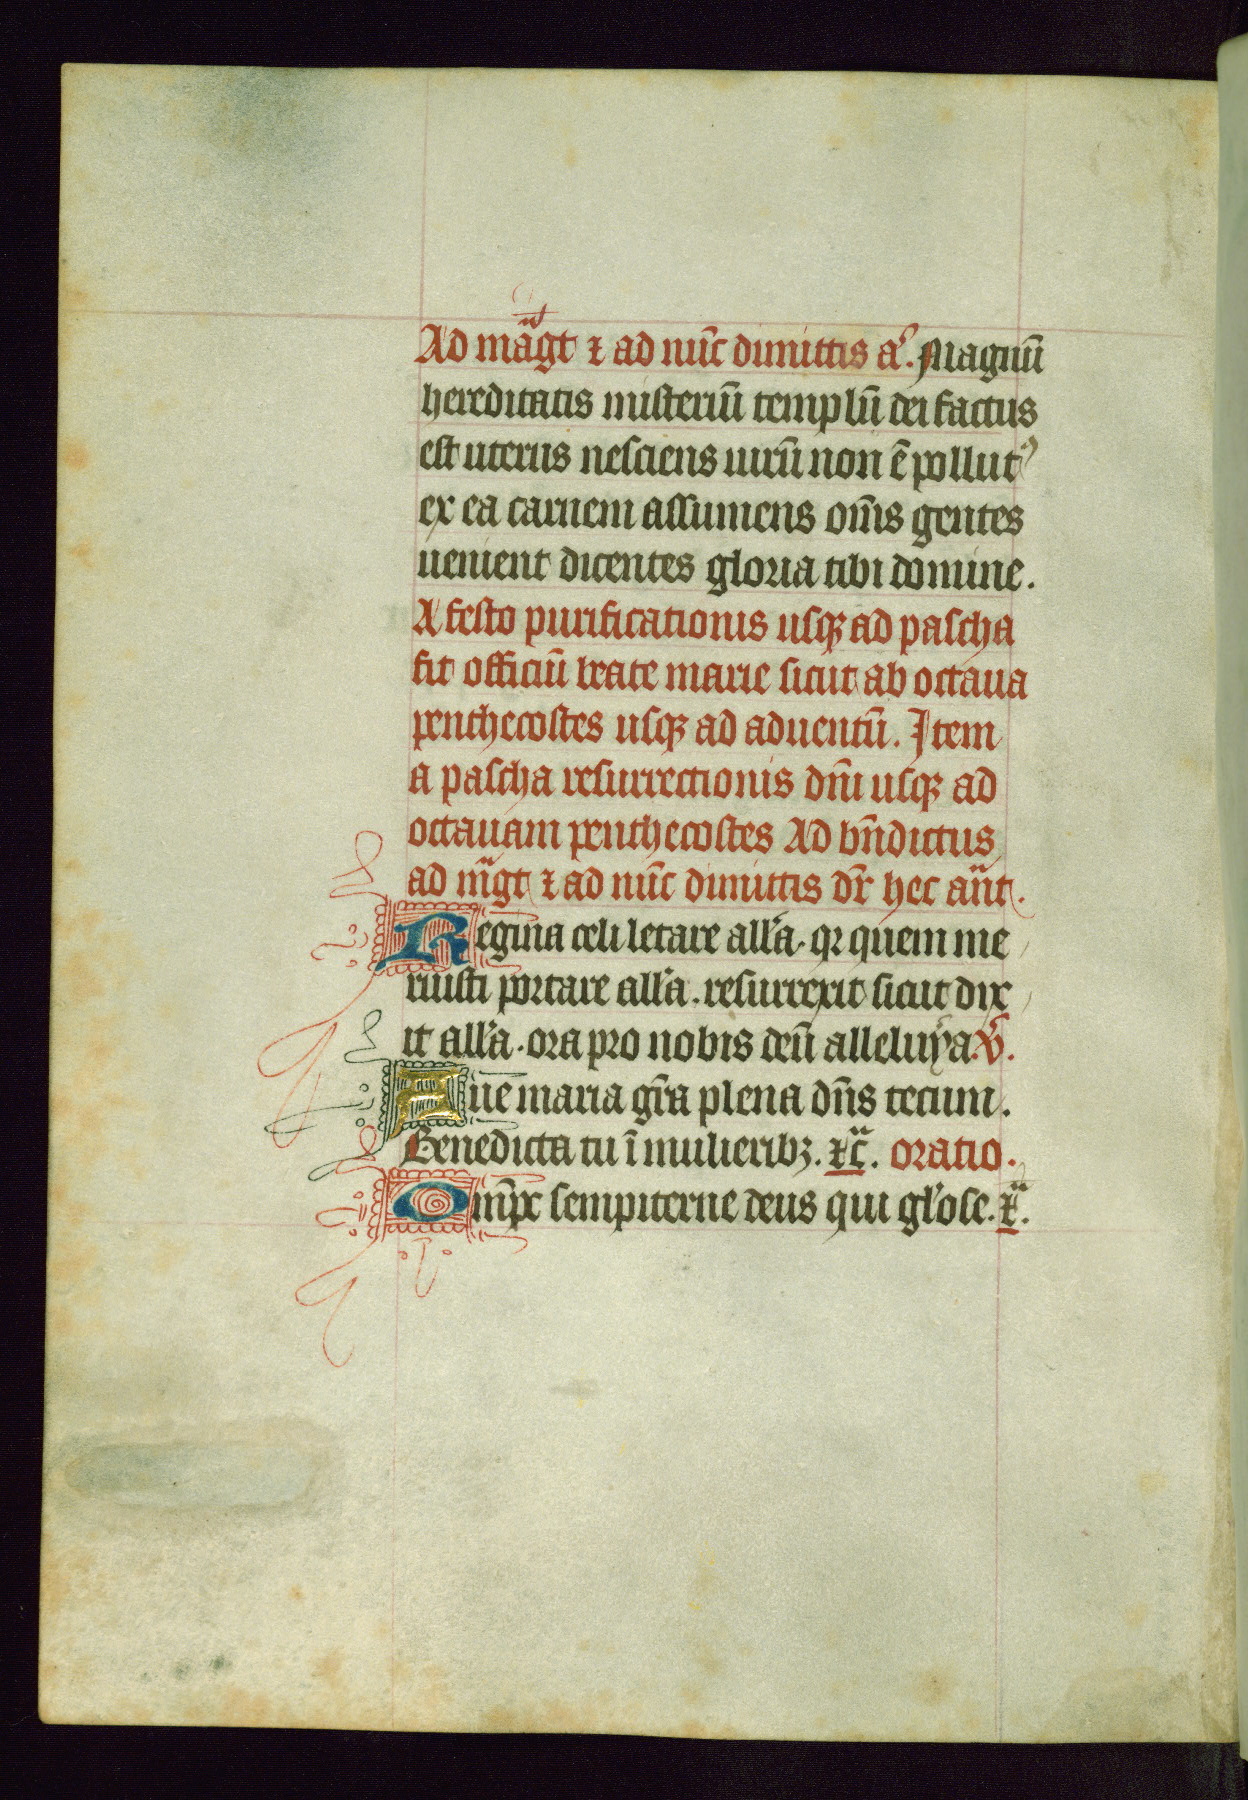 Ad ma̅gt ⁊ ad nu̅c dimittis aͦ. Magnu̅
hereditatis misteriu̅ templu̅ dei factus
est uterus nesciens uiru̅ non e̅ pollutꝰ
ex ea carnem assumens om̅s gentes
uenient dicentes gloria tibi domine.
A festo purificationis usqꝫ ad pascha
fit officiu̅ beate marie sicut ab octaua
penthecostes usqꝫ ad aduentu̅. Item
a pascha resurrectionis dn̅i usqꝫ ad
octauam penthecostes Ad bn̅dictus
ad m̅gt ⁊ ad nu̅c dimittis dr̅ hec an̅t.
Regina celi letare all'a. qꝛ quem me
ruisti portare all'a. resurrexit sicut dix
it all'a. ora pro nobis deu̅ alleluya. v̓.
Aue maria gr̅a plena dn̅s tecum.
Benedicta tu i̅ mulieribꝫ. ⁊c̅. oratio.
Omp̅c sempiterne deus qui gl'ose. ⁊̅.